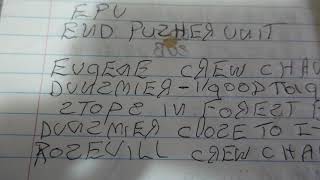 EPU
END PUSHER UNIT
EUGENE CREW CHA
DUNSMIER - 1 GOOD
STOPS IN FOREST
DUNSMIER CLOSE TO I-
ROSEVILL CREW CHA